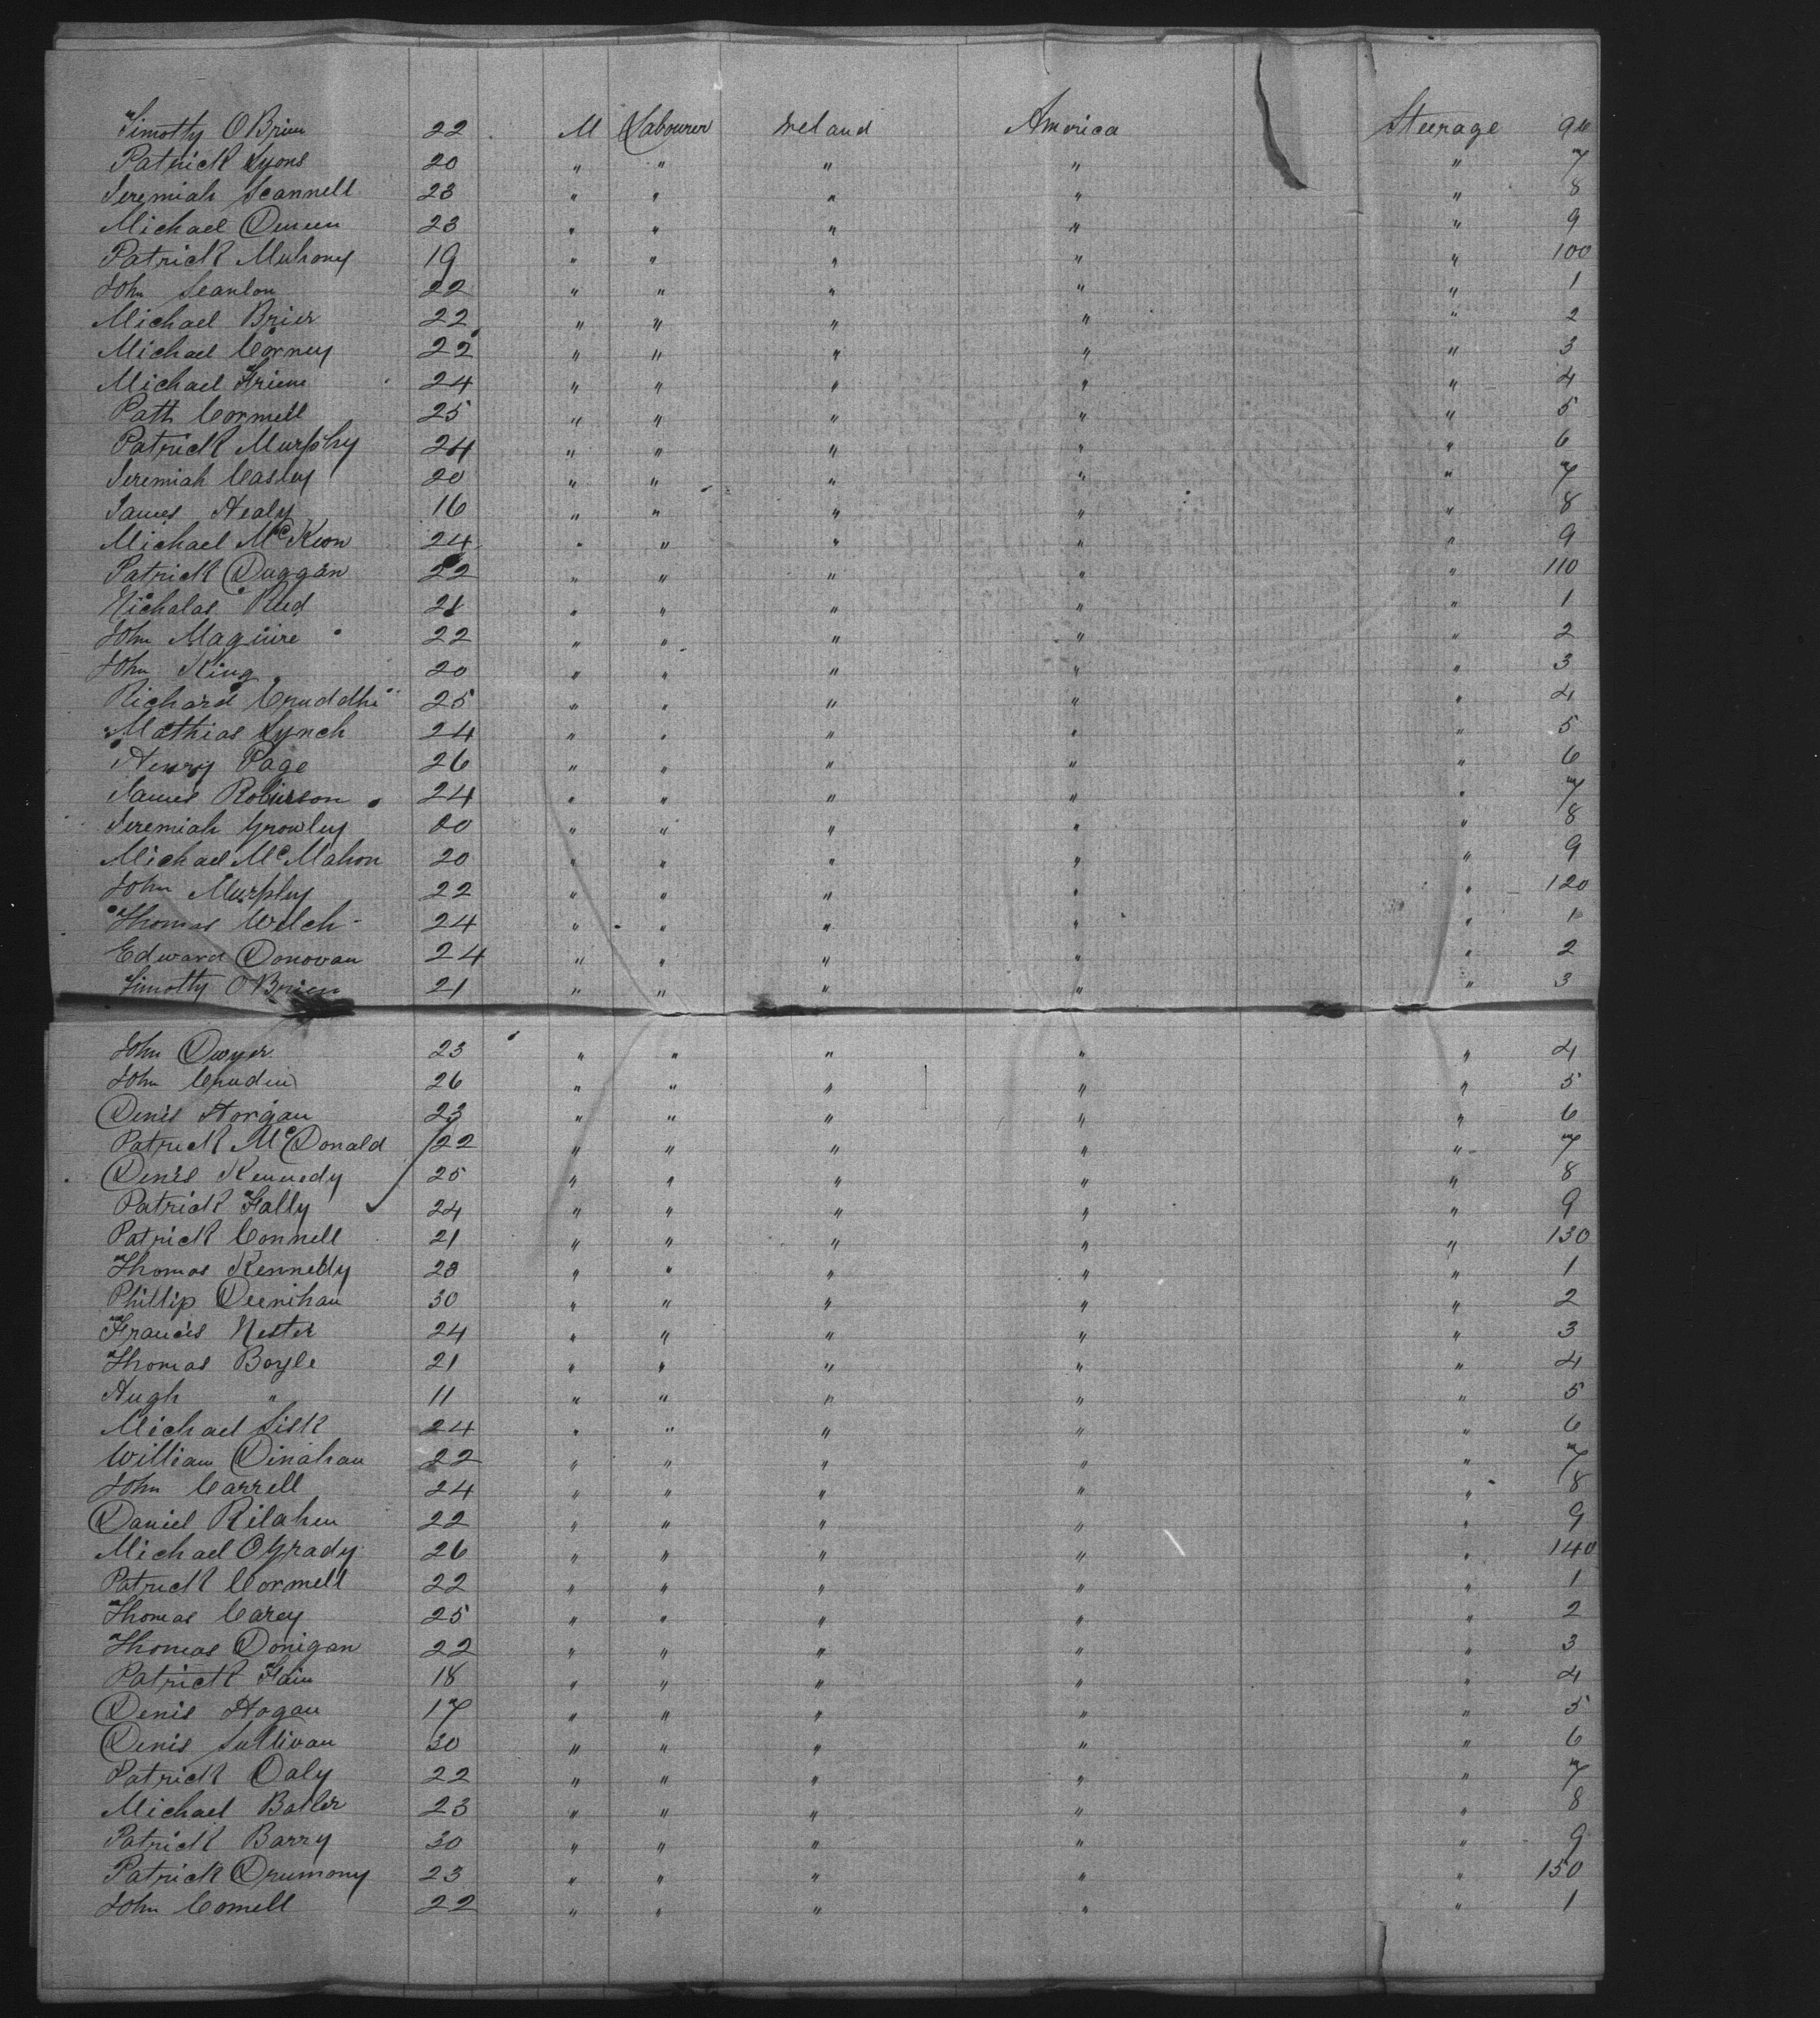 Timothy O Brien 22 M Labourer Ireland America Steerage 96
Patrick Lyons 20 " " " " " 7
Jeremiah Scannell 23 " " " " " 8
Michael Dineen 23 " " " " " 9
Patrick Muhony 19 " " " " " 100
John Scanlon 22 " " " " " 1
Michael Brier 22 " " " " " 2
Michael Corney 22 " " " " " 3
Michael 24 " " " " " 4
Patk Cormell 25 " " " " " 5
Patrick Murphy 24 " " " " " 6
Jeremiah Casley 20 " " " " " 7
James Healy 16 " " " " " 8
Michael McKeon 24 " " " " " 9
Patrick Duggan 22 " " " " " 110
Nicholas Reed 21 " " " " " 1
John Maguire 22 " " " " " 2
John King 20 " " " " " 3
Richard 25 " " " " " 4
Mathias Lynch 24 " " " " " 5
Henry Page 26 " " " " " 6
James Robinson 24 " " " " " 7
Jeremiah Growley 20 " " " " " 8
Michael McMahon 20 " " " " " 9
John Murphy 22 " " " " " 120
Thomas Welch 24 " " " " " 1
Edward Donovan 24 " " " " " 2
Timothy O Brien 21 " " " " " 3
John Dwyer 23 " " " " " 4
John 26 " " " " " 5
Denis Horgan 23 " " " " " 6
Patrick McDonald 22 " " " " " 7
Denis Kennedy 25 " " " " " 8
Patrick Fally 24 " " " " " 9
Patrick Connell 21 " " " " " 130
Thomas Kennedy 23 " " " " " 1
Phillip Deenihan 30 " " " " " 2
Francis Nester 24 " " " " " 3
Thomas Boyle 21 " " " " " 4
Hugh " 11 " " " " " 5
Michael Sisk 24 " " " " " 6
William Dinahan 22 " " " " " 7
John Carrell 24 " " " " " 8
Daniel Rilahen 22 " " " " " 9
Michael OGrady 26 " " " " " 140
Patrick Cormell 22 " " " " " 1
Thomas Carey 25 " " " " " 2
Thomas Donigan 22 " " " " " 3
Patrick Fain 18 " " " " " 4
Denis Hogan 17 " " " " " 5
Denis Sullivan 30 " " " " " 6
Patrick Daly 22 " " " " " 7
Michael Batler 23 " " " " " 8
Patrick Barry 30 " " " " " 9
Patrick Drumony 23 " " " " " 150
John Comell 22 " " " " " 1